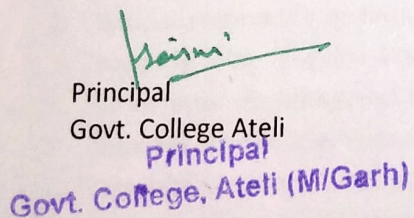 Principal
Govt. College Ateli
Principal
Govt. College, Ateli (M/Garh)